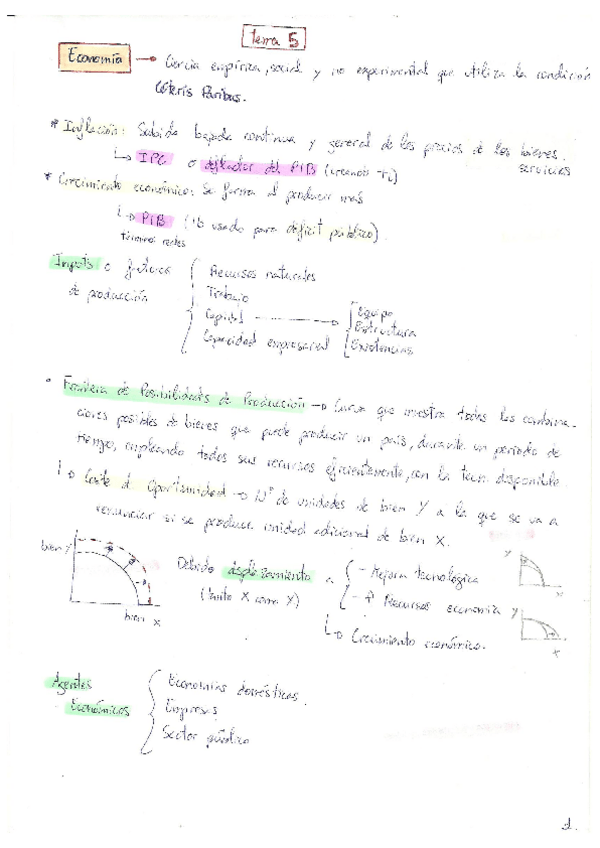 Tema 5
Economía → Ciencia empírica, social y no experimental que utiliza la condición
Céteris Páribus.
* Inflación: Subida continua y general de los precios de los bienes.
servicios
↳ IPC o deflactor del PIB
* Crecimiento económico: Se forma al producir más
↳ PIB (Tb usado para déficit público)
términos reales
Inputs o factores de producción
Recursos naturales
Trabajo
Capital → Equipo
Estructura
Existencias
Capacidad empresarial
• Frontera de Posibilidades de Producción → Curva que muestra todas las combina-
ciones posibles de bienes que puede producir un país, durante un periodo de
tiempo, empleando todos sus recursos eficientemente, con la tecn. disponible.
↳ Coste d Oportunidad → Nº de unidades de bien Y a la que se va a
renunciar si se produce unidad adicional de bien X.
bien Y
bien X
Debido desplazamiento a
(tanto X como Y)
- Mejora tecnológica
- ↑ Recursos economía
↳ Crecimiento económico.
Y
X
Y
X
Agentes
Económicos
Economías domésticas.
Empresas
Sector público
1.